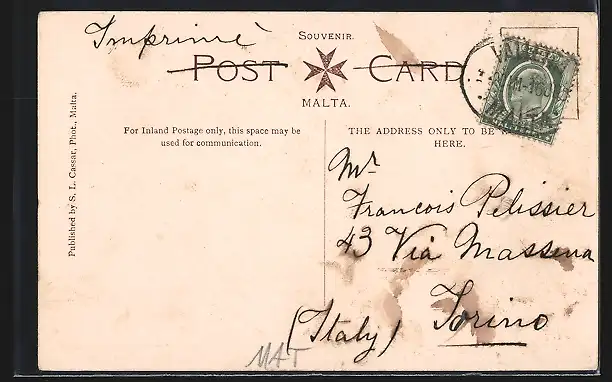 Imprimé
SOUVENIR.
POST CARD
MALTA.
For Inland Postage only, this space may be
used for communication.
THE ADDRESS ONLY TO BE
HERE.
Published by S. L. Cassar, Phot., Malta.
Mr
Francois Pelissier
43 Via Massena
Torino
(Italy)
MAT